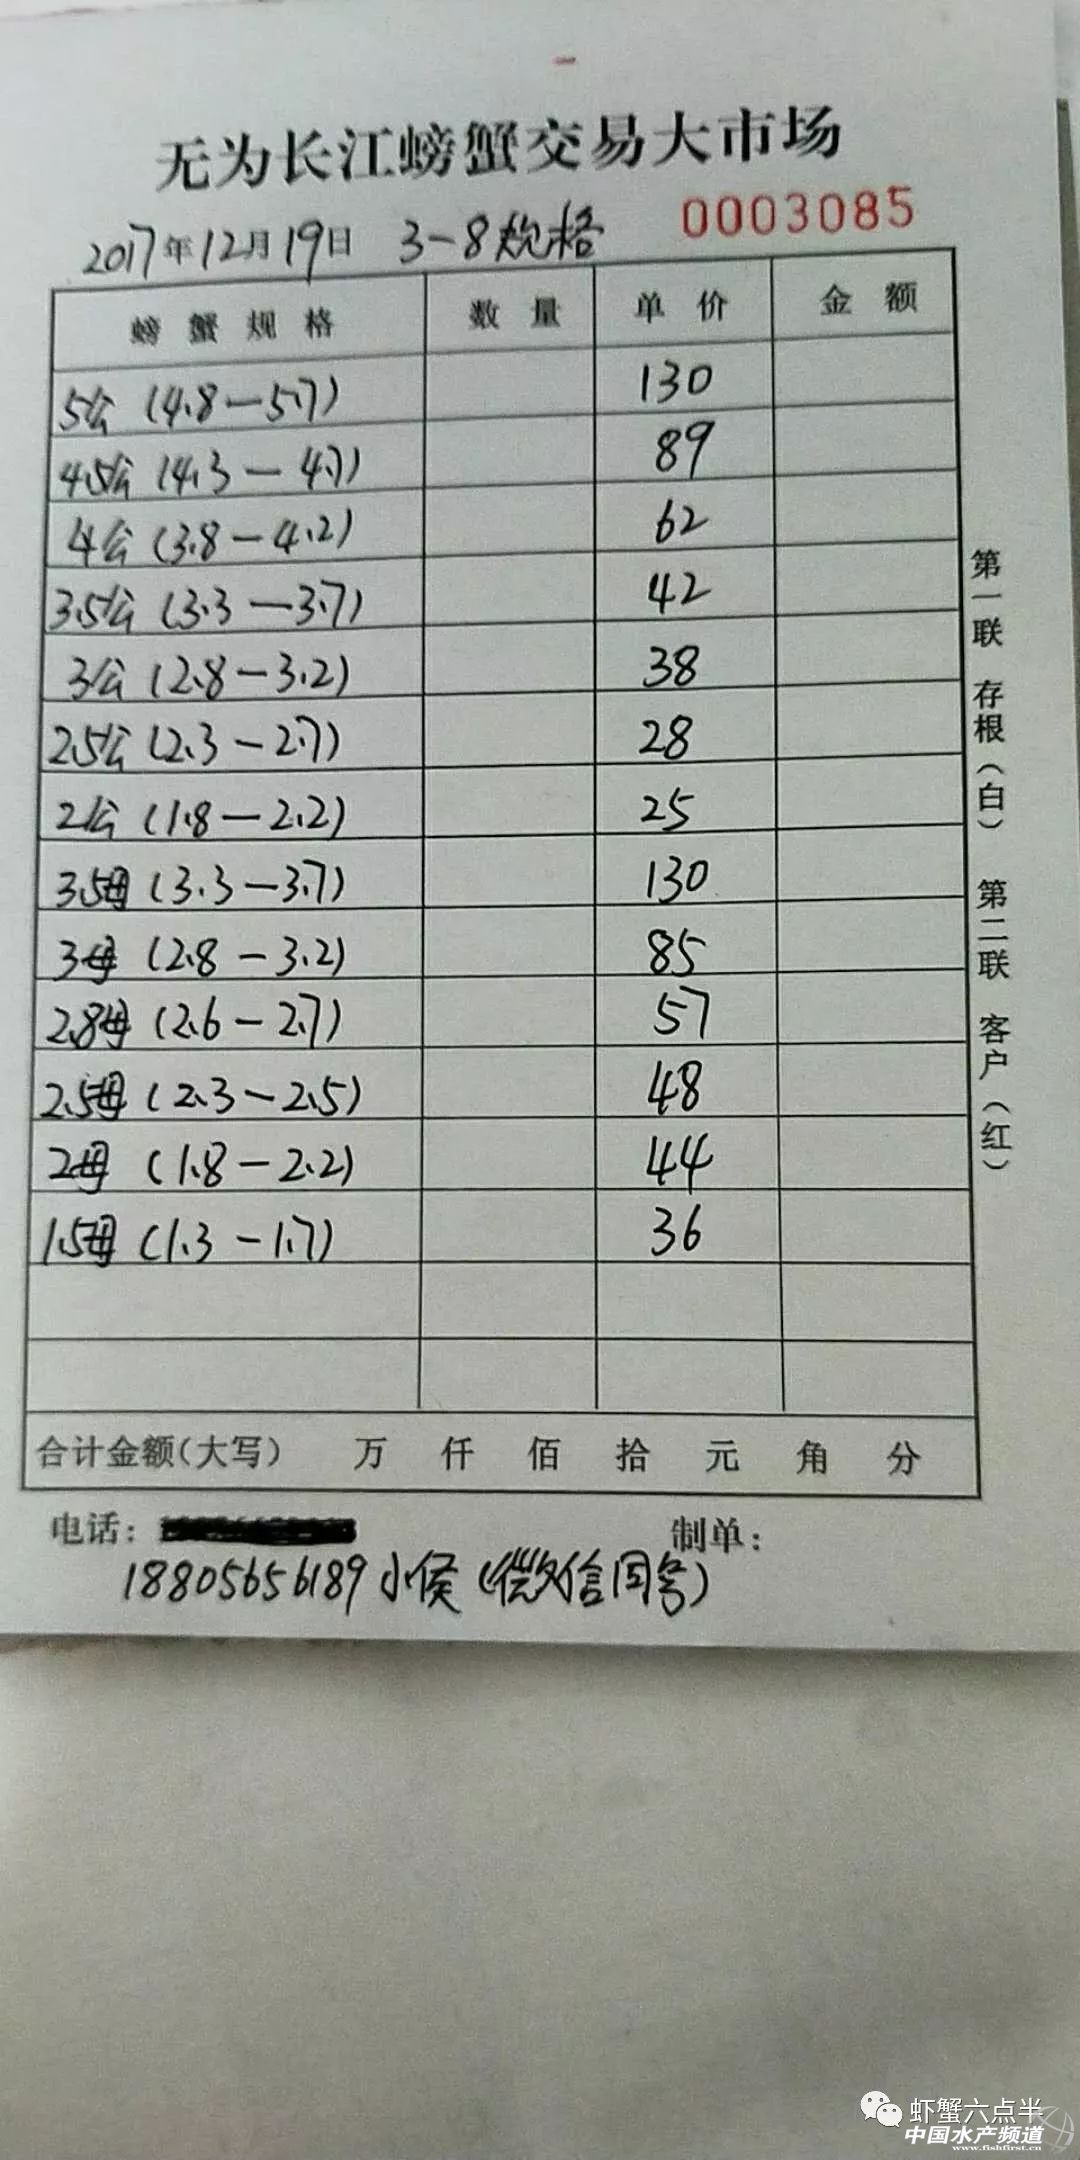 无为长江螃蟹交易大市场
2017年12月19日 3-8规格 0003085
螃蟹规格 数量 单价 金额
5公 (4.8-5.7) 130
4.5公 (4.3-4.7) 89
4公 (3.8-4.2) 62
3.5公 (3.3-3.7) 42
3公 (2.8-3.2) 38
2.5公 (2.3-2.7) 28
2公 (1.8-2.2) 25
3.5母 (3.3-3.7) 130
3母 (2.8-3.2) 85
2.8母 (2.6-2.7) 57
2.5母 (2.3-2.5) 48
2母 (1.8-2.2) 44
1.5母 (1.3-1.7) 36
合计金额(大写) 万 仟 佰 拾 元 角 分
电话: 制单:
18805656189小侯(微信同号)
第一联 存根(白) 第二联 客户(红)
虾蟹六点半
中国水产频道
www.fishfirst.cn